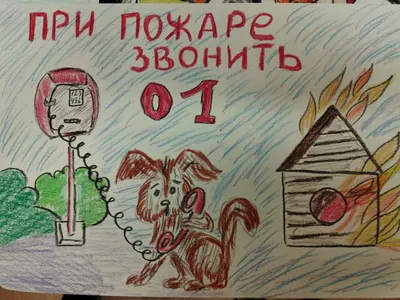 ПРИ ПОЖАРЕ
ЗВОНИТЬ
01